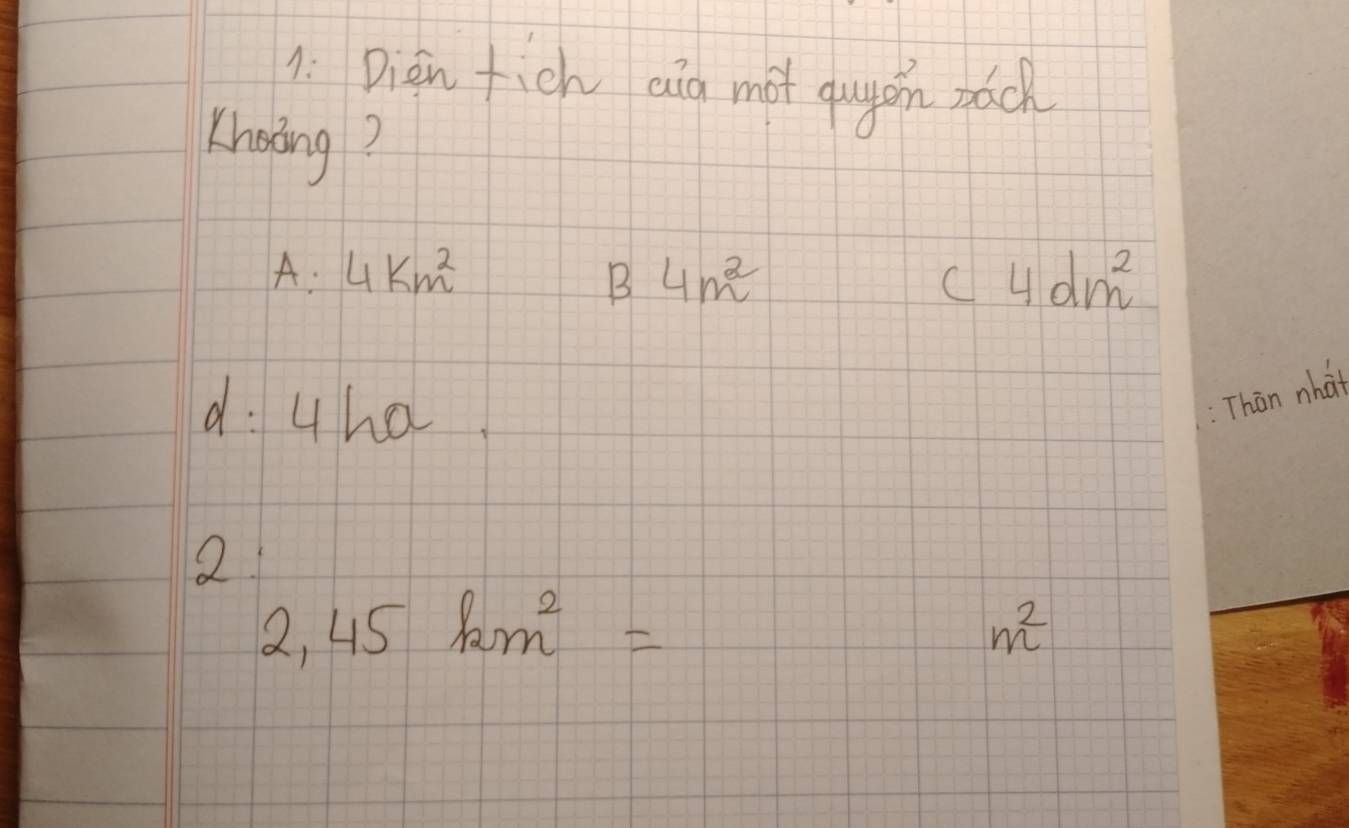 1: Diện tích của một quyển sách
Khoảng ?
A: 4 Km² B 4 m² C 4 dm²
d: 4 ha .
: Thân nhất
2:
2,45 km² = m²